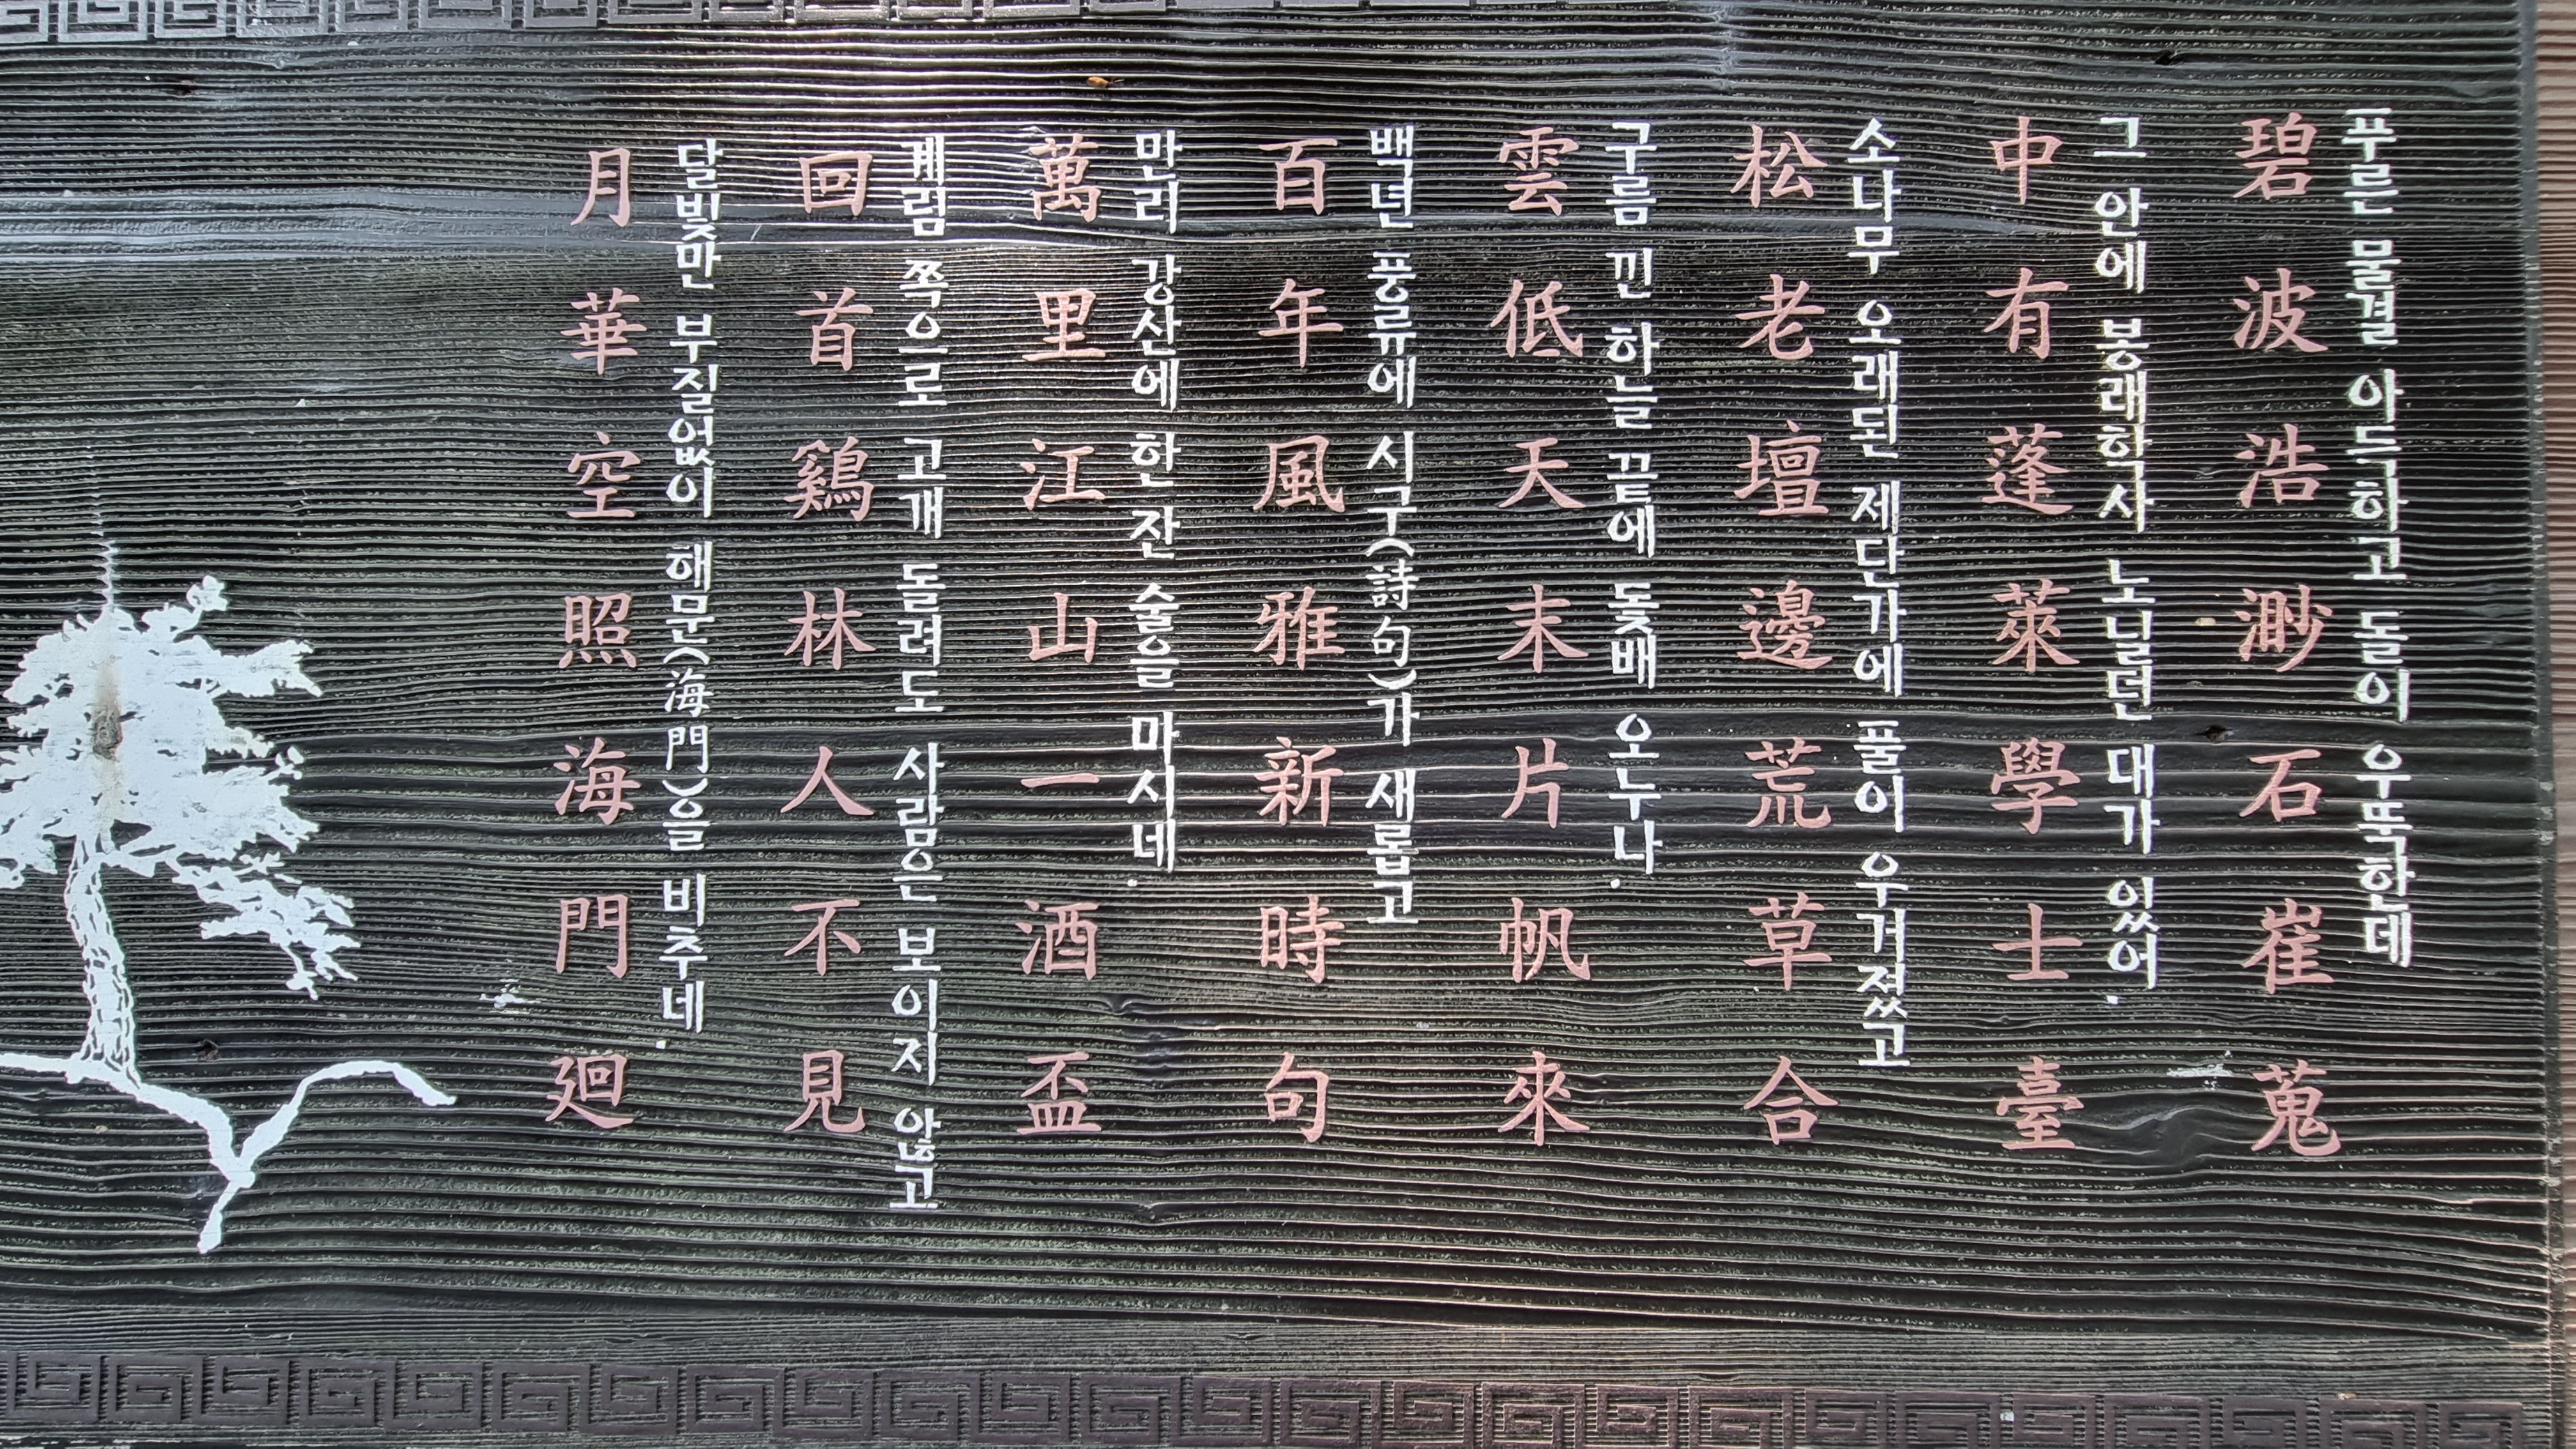 푸른 물결 아득하고 돌이 우뚝한데
碧波浩渺石崔蒐
그 안에 봉래학사 노닐던 대가 있어.
中有蓬萊學士臺
소나무 오래된 제단가에 풀이 우거졌고
松老壇邊荒草合
구름 낀 하늘 끝에 돛배 오누나.
雲低天末片帆來
백년 풍류에 시구(詩句)가 새롭고
百年風雅新時句
만리 강산에 한 잔 술을 마시네.
萬里江山一酒盃
계림 쪽으로 고개 돌려도 사람은 보이지 않고
回首鷄林人不見
달빛만 부질없이 해문(海門)을 비추네.
月華空照海門廻